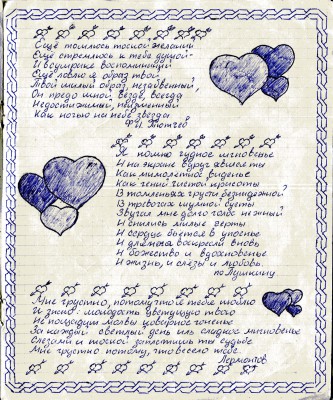 Ещё томлюсь тоской желаний
Ещё стремлюсь к тебе душой-
И в сумраке воспоминаний
Ещё ловлю я образ твой
Твой милый образ, незабвенный,
Он предо мной везде, всегда
Недостижимый, неизменный
Как ночью на небе звезда
Ф.И. Тютчев
Я помню чудное мгновенье
И на экране вдруг явился ты
Как мимолётное виденье
Как гений чистой красоты
В томленьях грусти безнадежной
В тревогах шумной суеты
Звучал мне долго голос нежный
И снились милые черты
И сердце бьётся в упоенье
И для меня воскресли вновь
И божество и вдохновенье
И жизнь, и слёзы и любовь.
по Пушкину
Мне грустно, потому что я тебя люблю
И знаю: молодость цветущую твою
Не пощадит молвы коварное гоненье
За каждый светлый день иль сладкое мгновенье
Слезами и тоской заплатишь ты судьбе
Мне грустно потому, что весело тебе.
Лермонтов